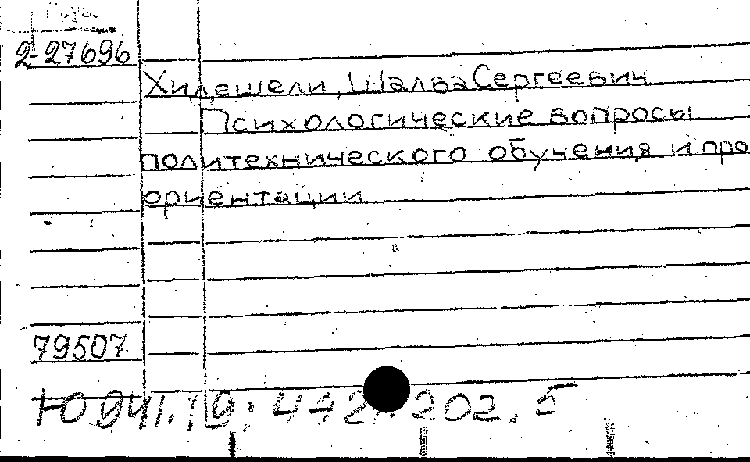 2-27696
Хидешели, Шалва Сергеевич
Психологические вопросы
политехнического обучения и про
ориентации
79507